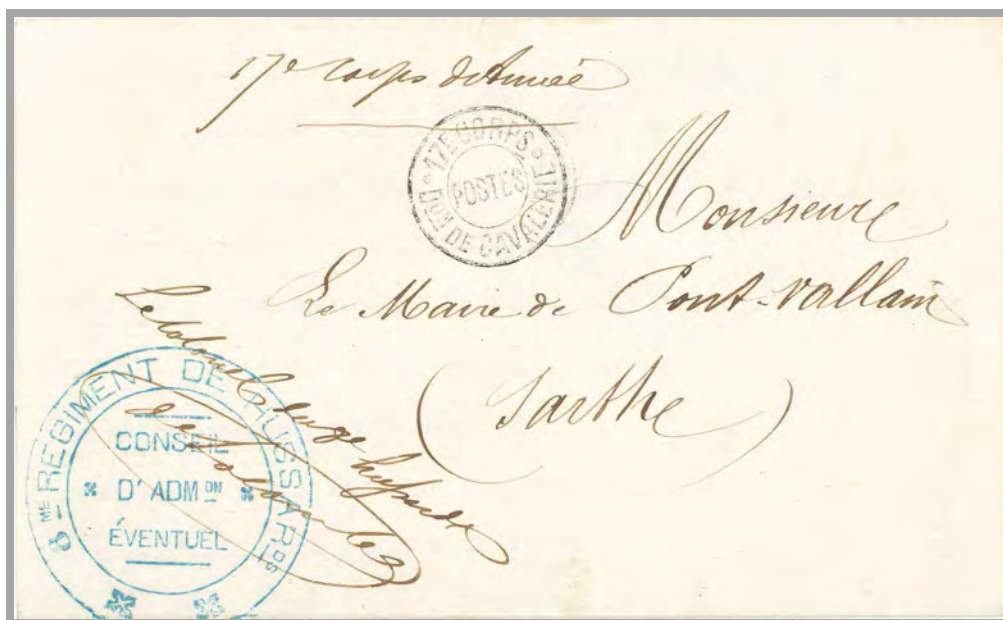 17e Corps d'Armée
17E CORPS
POSTES
DON DE CAVALERIE
Monsieur
Le Maire de Pont-Vallain
(Sarthe)
Le Colonel
8ME REGIMENT DE HUSSARDS
CONSEIL
D'ADMON
ÉVENTUEL